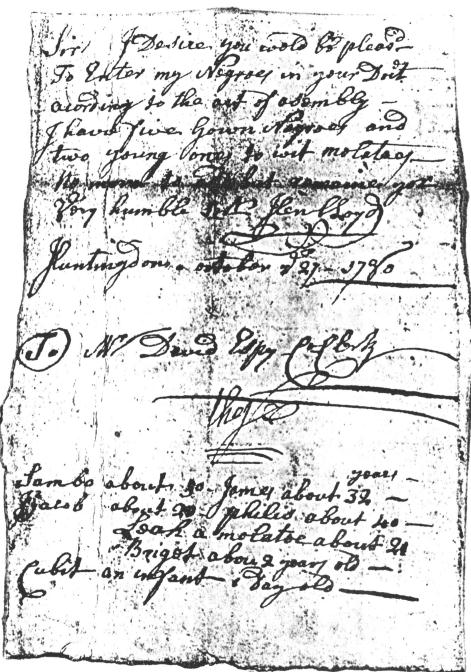 Sir I Desire you would be pleasd
To Enter my Negroes in your Doct
acording to the act of asembly –
I have five Grown Negroes and
two young ones to wit molatoes
No more to add but remaines yor
Very humble Servt Hen Lloyd
Huntingdon. october ye 27 – 1780
To Mr David Espy
years
Sambo about 30 James about 32 –
Jacob about 20 philis about 40 –
Leah a molatoe about 21
Briget about 2 years old –
Cubit an infant 1 Day old